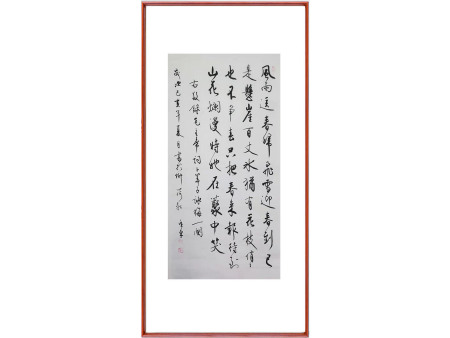 風雨送春歸飛雪迎春到已
是懸崖百丈冰猶有花枝俏
也不爭春只把春來報待到
山花爛漫時她在叢中笑
右敬錄毛主席詞卜算子詠梅一闋
歲次己亥年夏月書於